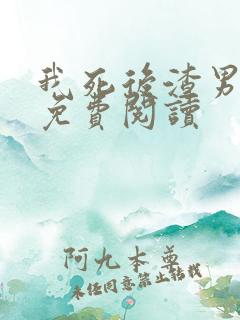 我死後渣男
免費閱讀
阿九本尊
未经同意禁止转载